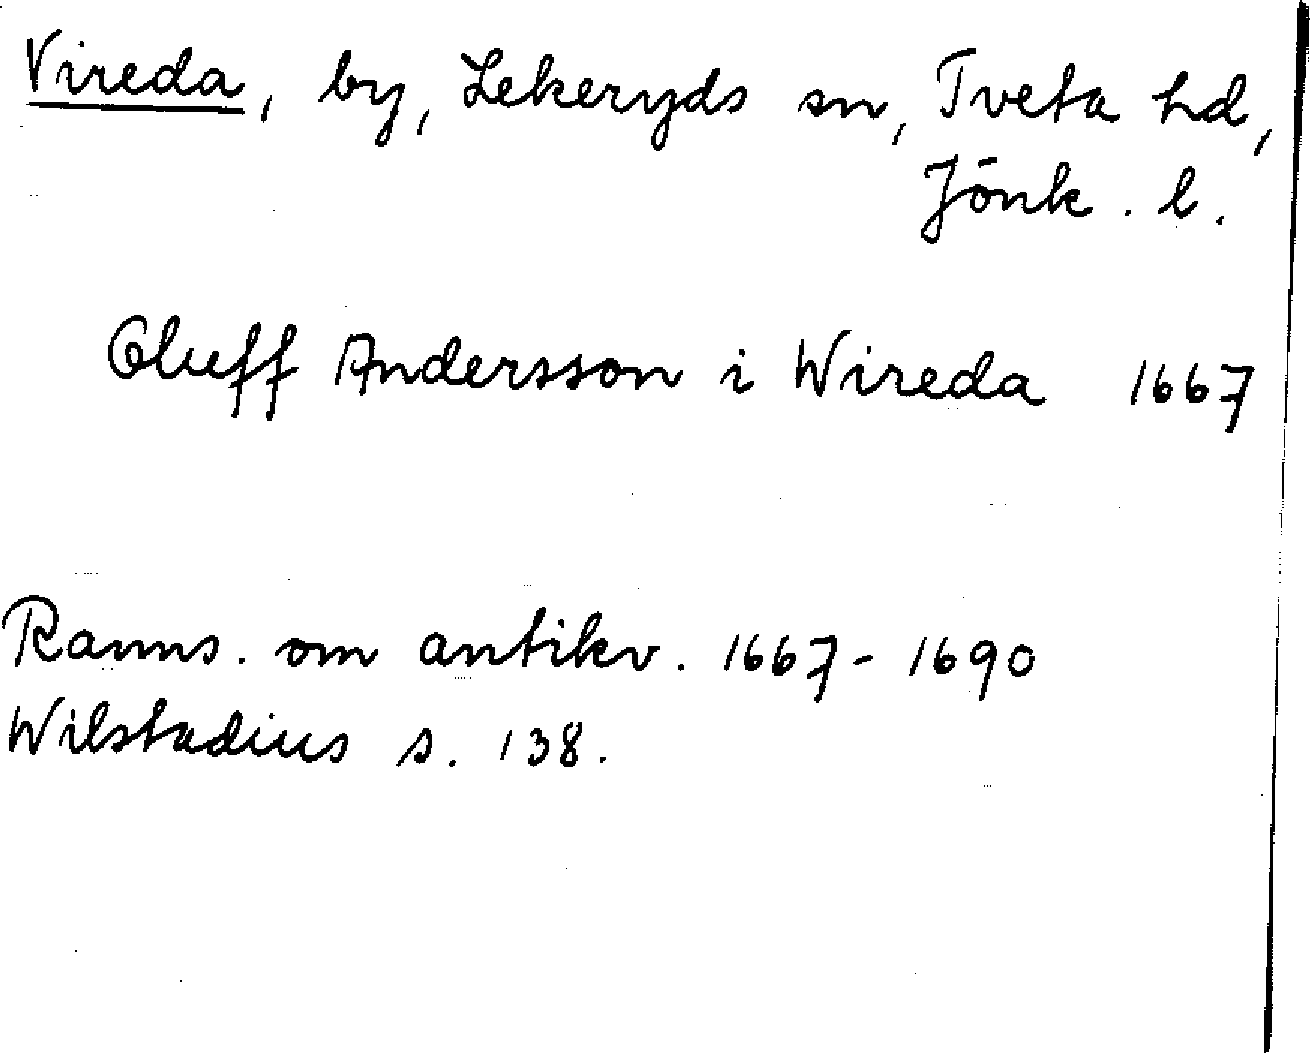 Vireda, by, Lekeryds sn, Tveta hd,
Jönk. l.
Oluff Andersson i Wireda 1667
Ranns. om antikv. 1667-1690
Wilstadius s. 138.